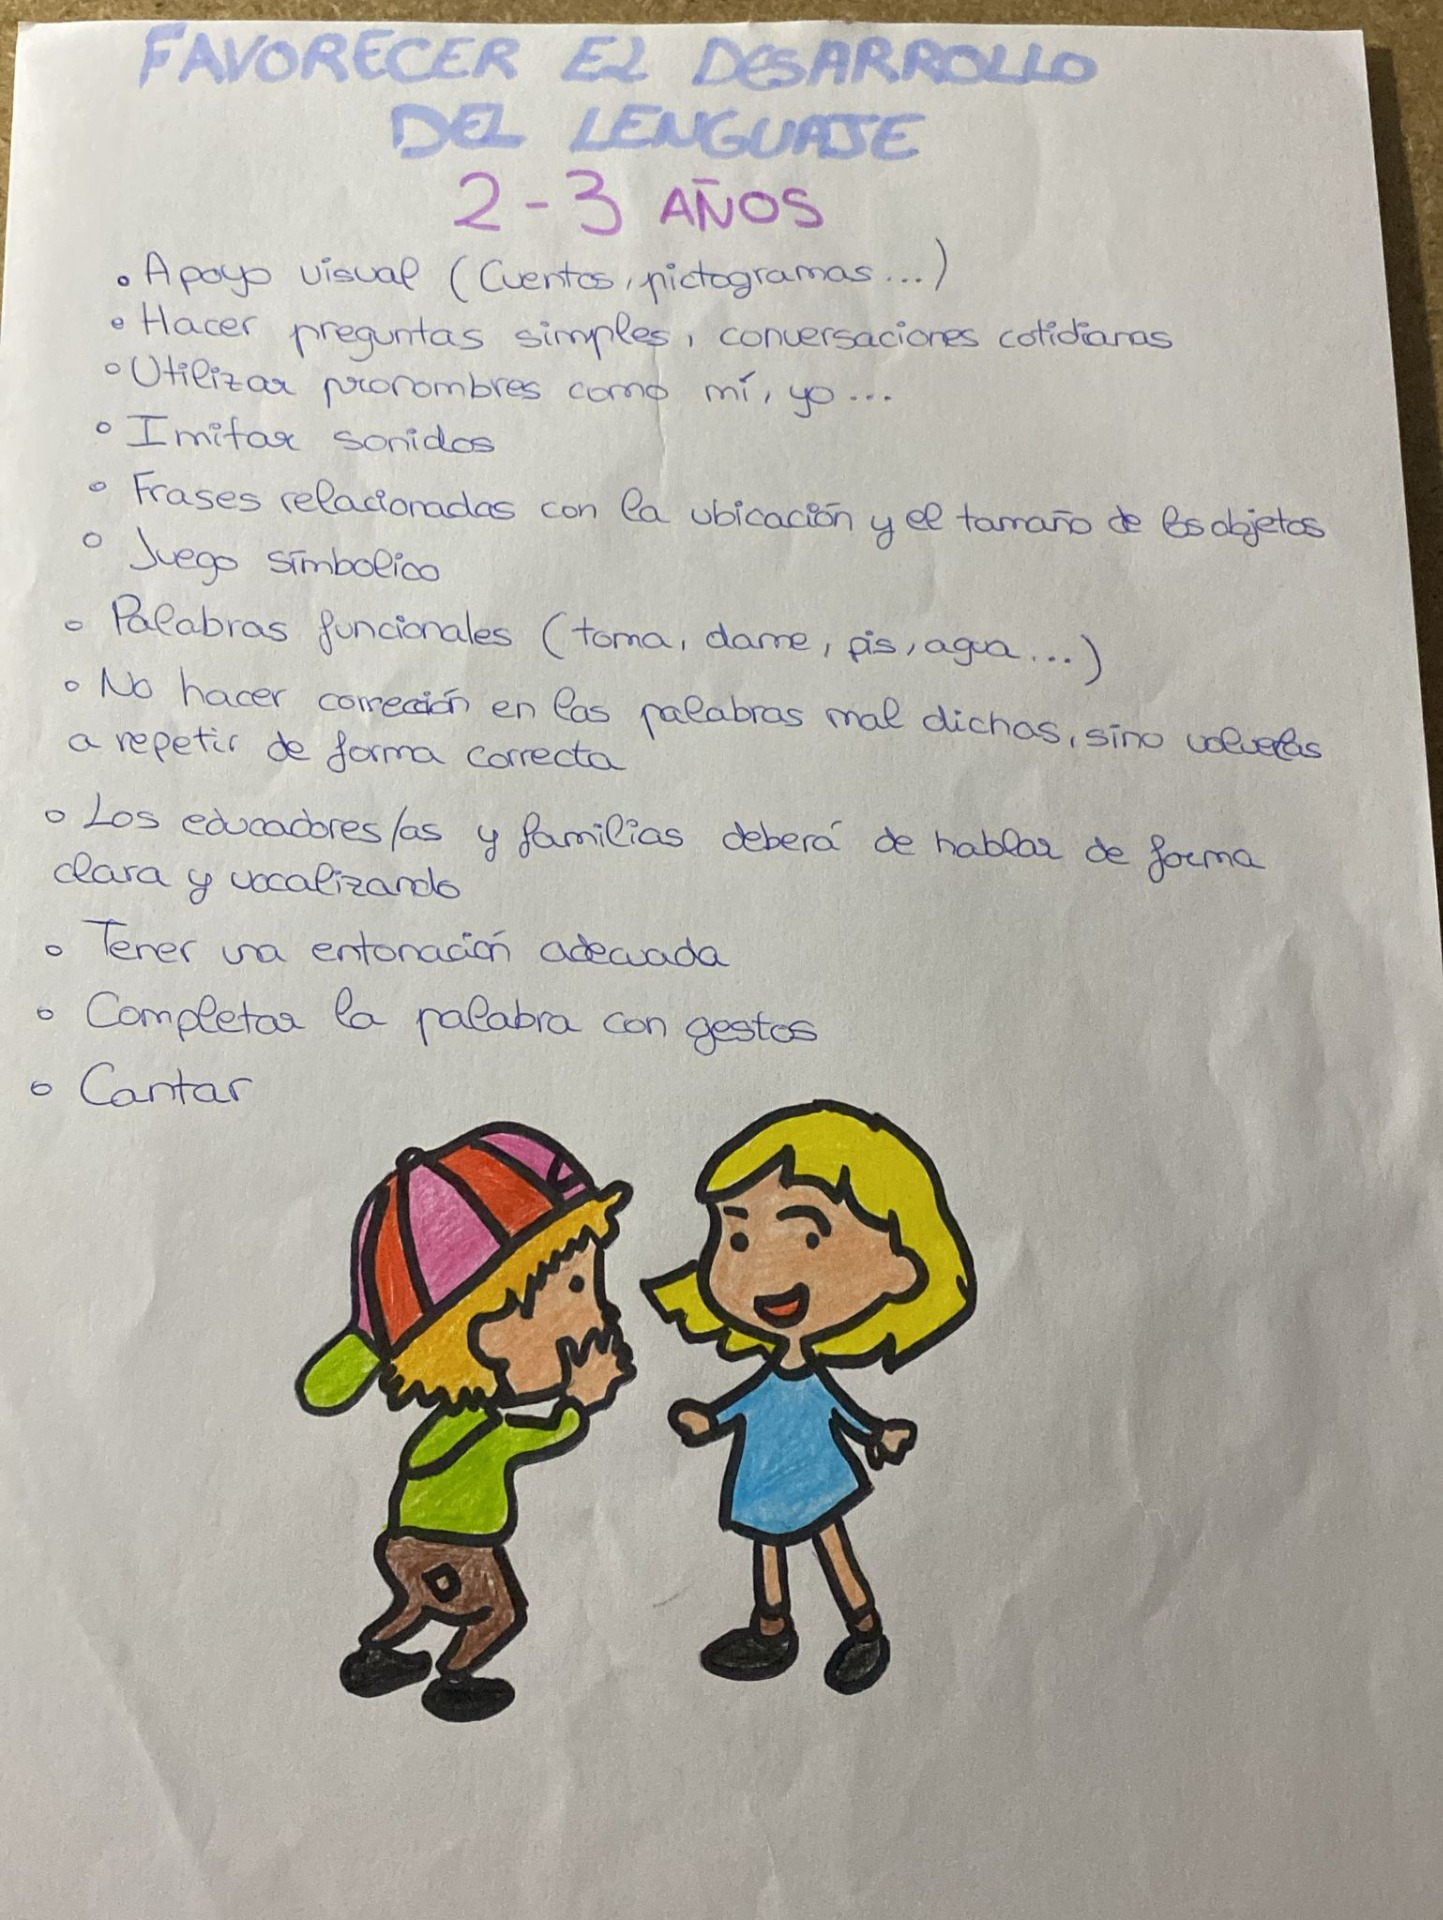 FAVORECER EL DESARROLLO
DEL LENGUAJE
2-3 AÑOS
• Apoyo visual (Cuentos, pictogramas...)
• Hacer preguntas simples, conversaciones cotidianas
• Utilizar pronombres como mí, yo...
• Imitar sonidos
• Frases relacionadas con la ubicación y el tamaño de los objetos
• Juego símbolico
• Palabras funcionales (toma, dame, pis, agua...)
• No hacer corrección en las palabras mal dichas, sino volverlas
a repetir de forma correcta
• Los educadores/as y familias deberá de hablar de forma
clara y vocalizando
• Tener una entonación adecuada
• Completar la palabra con gestos
• Cantar